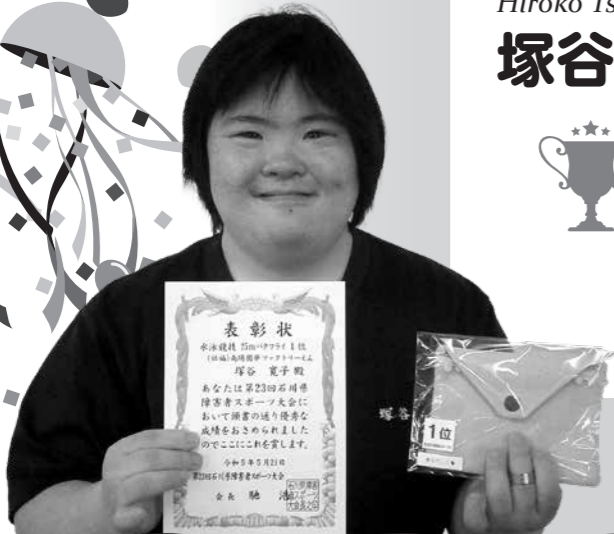 Hiroko Ts
塚谷
表彰状
水泳競技 25mバタフライ 1位
塚谷 寛子 殿
あなたは第23回石川県
障害者スポーツ大会に
おいて頭書の通り優秀な
成績をおさめられました
のでここにこれを賞します。
令和5年5月21日
第23回石川県障害者スポーツ大会
会長 馳 浩
塚谷
1位